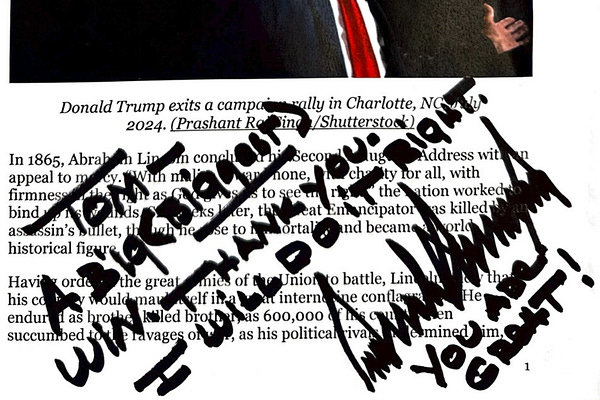 Donald Trump exits a campaign rally in Charlotte, NC, July
2024. (Prashant /Shutterstock)
In 1865, Abraham Lincoln concluded his Second Inaugural Address with an
appeal to mercy. "With malice none, with charity for all, with
firmness in the right as God gives us to see the right," the nation worked to
bind up its wounds. weeks later, the Great Emancipator was killed by an
assassin's bullet, though he rose to immortality and became a world
historical figure.
Having ordered the great armies of the Union to battle, Lincoln knew that
his country would maul itself in a great internecine conflagration. He
endured as brother killed brother, as 600,000 of his countrymen
succumbed to the ravages of war, as his political rivals undermined him,
1
TOM-
A BIG (BIGGEST)
WIN- THANK YOU.
I WILL DO IT RIGHT.
YOU ARE
GREAT!